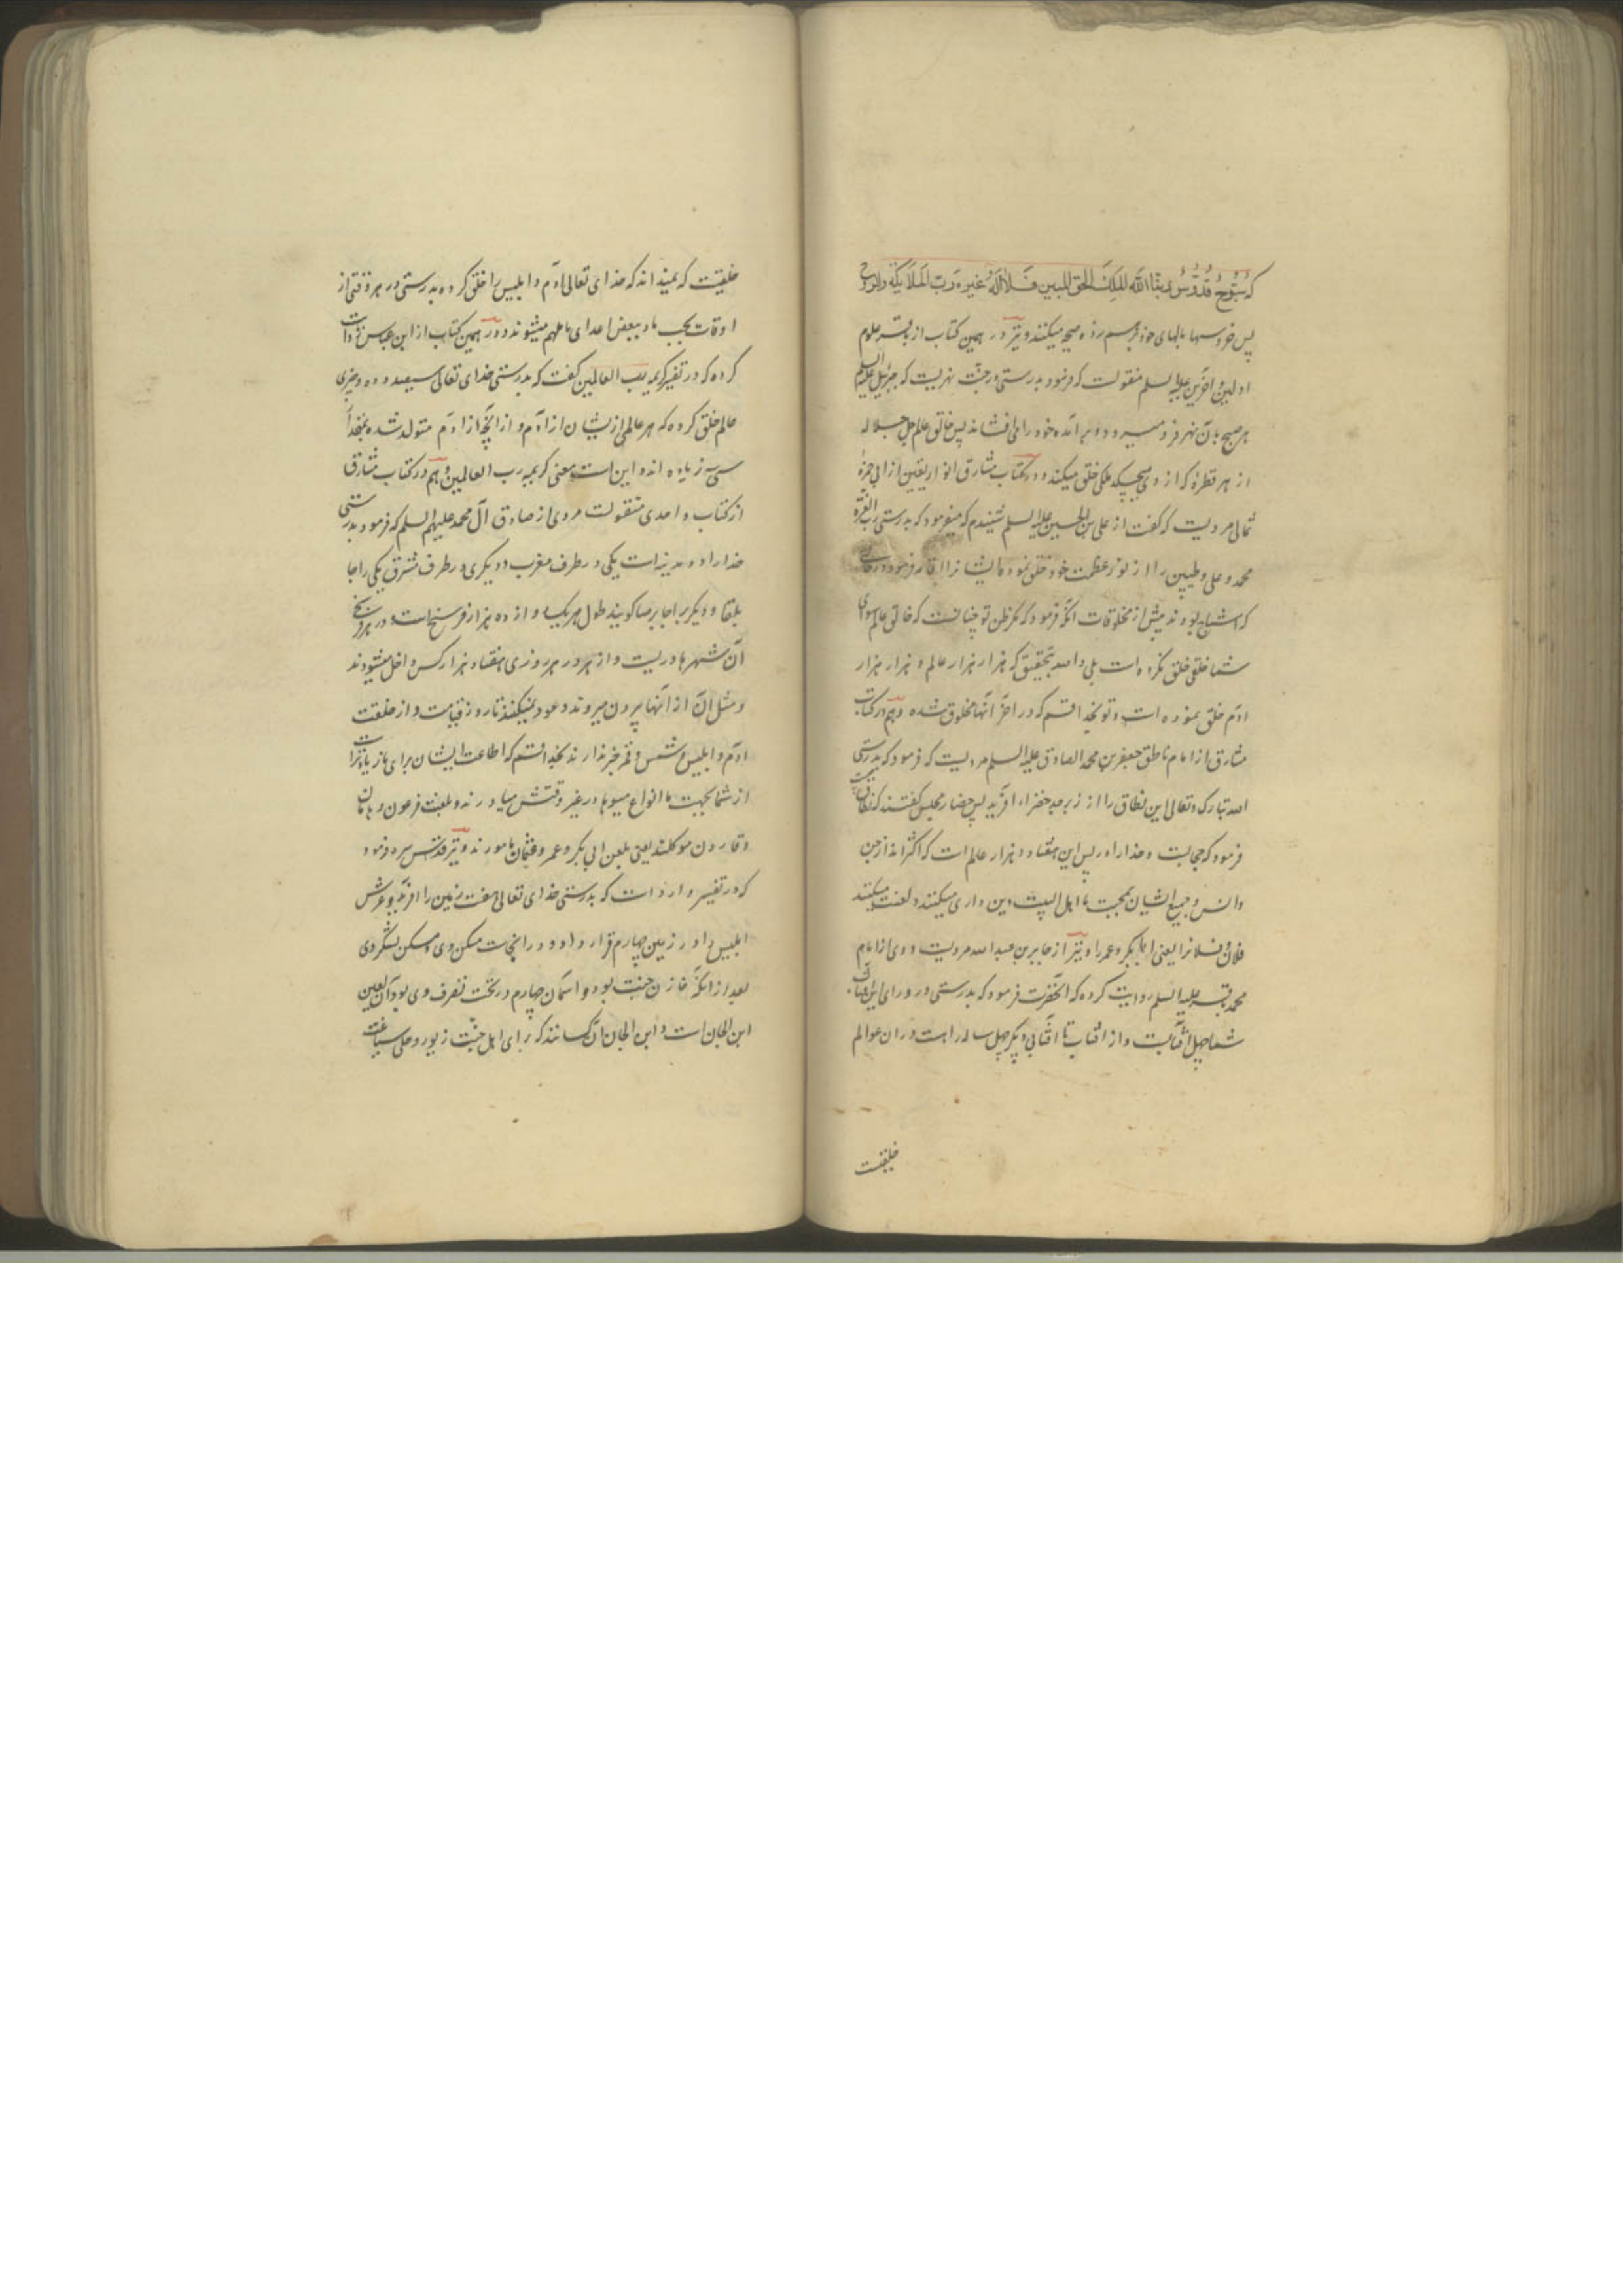 که سُبّوحٌ قُدّوسٌ ربنا الله الملک الحق المبین فلا اله غیره رب الملائکة والروح
پس خروسها بالهای خود بر هم زده صیحه میکنند و نیز در همین کتاب از باقر علوم
اولین و آخرین علیه السلم منقولست که فرمود بدرستی در جنت نهریست که جبرئیل علیه السلم
هر صبح بآن نهر فرو میرود و بر آمده خود را می افشاند پس خالق عالم جل جلاله
از هر قطرهٔ که از وی میچکد ملکی خلق میکند و در کتاب مشارق انوار الیقین از ابی حمزهٔ
ثمالی مرویست که گفت از علی بن الحسین علیه السلم شنیدم که میفرمود که بدرستی رب العزه
محمد و علی و طیبین را از نور عظمت خود خلق نموده ایشانرا
که اشباح بودند پیش از مخلوقات آنگه فرمود که مگر ظن تو چنانست که خالق عالم سوای
شما خلقی خلق نکرده است بلی والله بتحقیق که هزار هزار عالم و هزار هزار
آدم خلق نموده است و تو بخدا قسم که در آخر آنها مخلوق شده و هم در کتاب
مشارق از امام ناطق جعفر بن محمد الصادق علیه السلم مرویست که فرمود که بدرستی
الله تبارک و تعالی این نطاق را از زبرجد خضراء آفرید پس حضار مجلس گفتند که نطاق چیست
فرمود که حجابست و خدا را در پس این هفتاد هزار عالم است که اکثراند از جن
و انس و جمیع ایشان بمحبت ما اهل البیت دین داری میکنند و لعنت میکنند
فلان و فلانرا یعنی ابابکر و عمر را و نیز از جابر بن عبدالله مرویست و وی از امام
محمد باقر علیه السلم روایت کرده که آنحضرت فرمود که بدرستی در ورای این آفتاب
شما چهل آفتابست و از آفتاب تا آفتابی دیگر چهل ساله راهست و در آن عوالم
خلقیست
خلقیست که نمیدانند که خدای تعالی آدم و ابلیس را خلق کرده بدرستی در هر وقتی از
اوقات بحب ما و ببغض اعدای ما ملهم میشوند و در همین کتاب از ابن عباس روایت
کرده که در تفسیر کریمه رب العالمین گفت که بدرستی خدای تعالی سیصد و ده و چیزی
عالم خلق کرده که هر عالمی از ایشان از آدم و از آنچه از آدم متولد شده بخدا
سی زیاده اند و این است معنی کریمه رب العالمین و هم در کتاب مشارق
از کتاب واحدی منقولست مروی از صادق آل محمد علیهم السلم که فرمود بدرستی
خدا را دو مدینه است یکی در طرف مغرب و دیگری در طرف مشرق یکی را جا
بلقا و دیگر را جابرصا گویند طول هر یک دوازده هزار فرسخ است و در هر فرسخ
آن شهرها دریست و از هر در هر روزی هفتاد هزار کس داخل میشوند
و مثل آن از آنها بیرون میروند و عود نمیکنند تا روز قیامت و از خلقت
آدم و ابلیس و شمس و قمر خبر ندارند بخدا قسم که اطاعت ایشان برای ما زیاده تر است
از شما بجهت ما انواع میوها در غیر وقتش میاورند و بلعنت فرعون و هامان
و قارون موکلند یعنی بلعن ابی بکر و عمر و عثمان مامورند و نیز قدس سره فرمود
که در تفسیر وارد است که بدرستی خدای تعالی هفت زمین را آفرید و عرش
ابلیس را در زمین چهارم قرار داد و در آنجاست مسکن وی و مسکن لشکر وی
بعد از آنکه خازن جنت بود و آسمان چهارم در تحت تصرف وی بود و آن لعین
ابن الجان است و ابن الجان آن کسانند که برای اهل جنت زیور و حلی